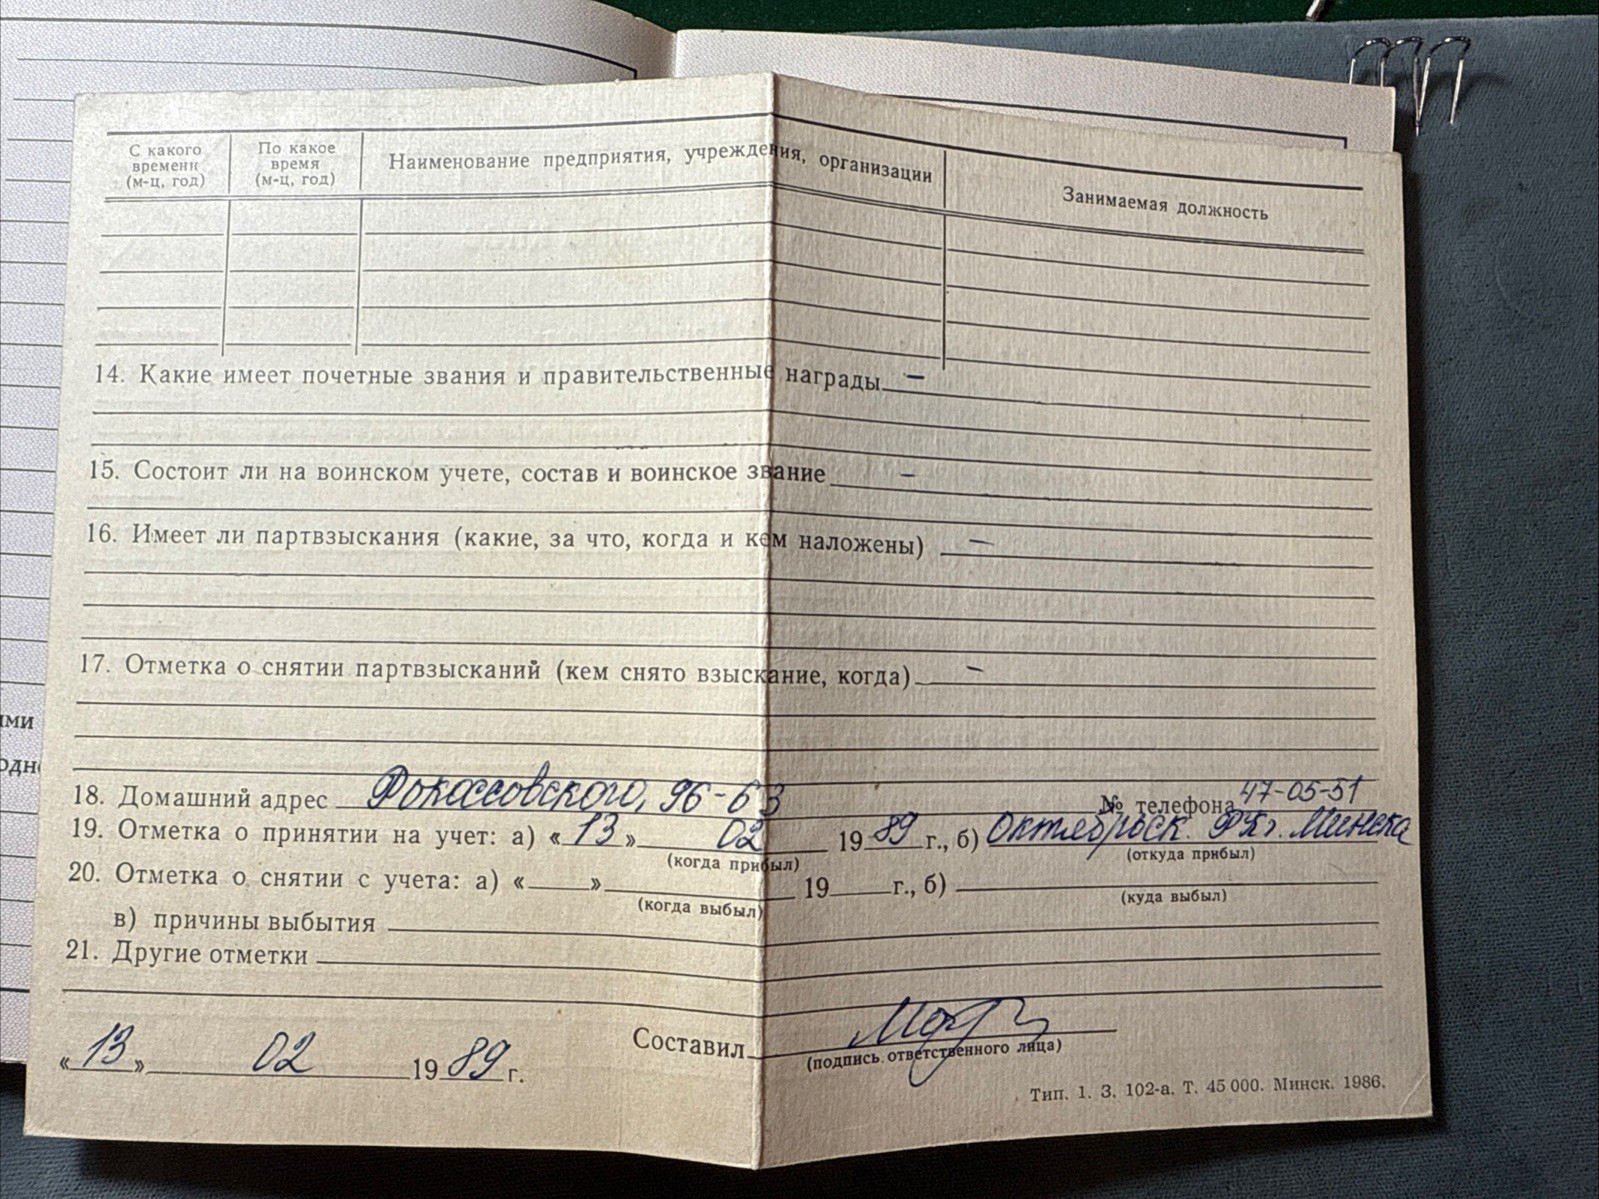 С какого времени (м-ц, год)
По какое время (м-ц, год)
Наименование предприятия, учреждения, организации
Занимаемая должность
14. Какие имеет почетные звания и правительственные награды –
15. Состоит ли на воинском учете, состав и воинское звание –
16. Имеет ли партвзыскания (какие, за что, когда и кем наложены) –
17. Отметка о снятии партвзысканий (кем снято взыскание, когда) –
ими
одн
18. Домашний адрес Рокоссовского, 96-63 № телефона 47-05-51
19. Отметка о принятии на учет: а) «13» 02 1989 г., б) Октябрьск. РК г. Минска
(когда прибыл) (откуда прибыл)
20. Отметка о снятии с учета: а) « » 19 г., б)
(когда выбыл) (куда выбыл)
в) причины выбытия
21. Другие отметки
Составил
(подпись ответственного лица)
«13» 02 1989 г.
Тип. 1. З. 102-а. Т. 45 000. Минск. 1986.